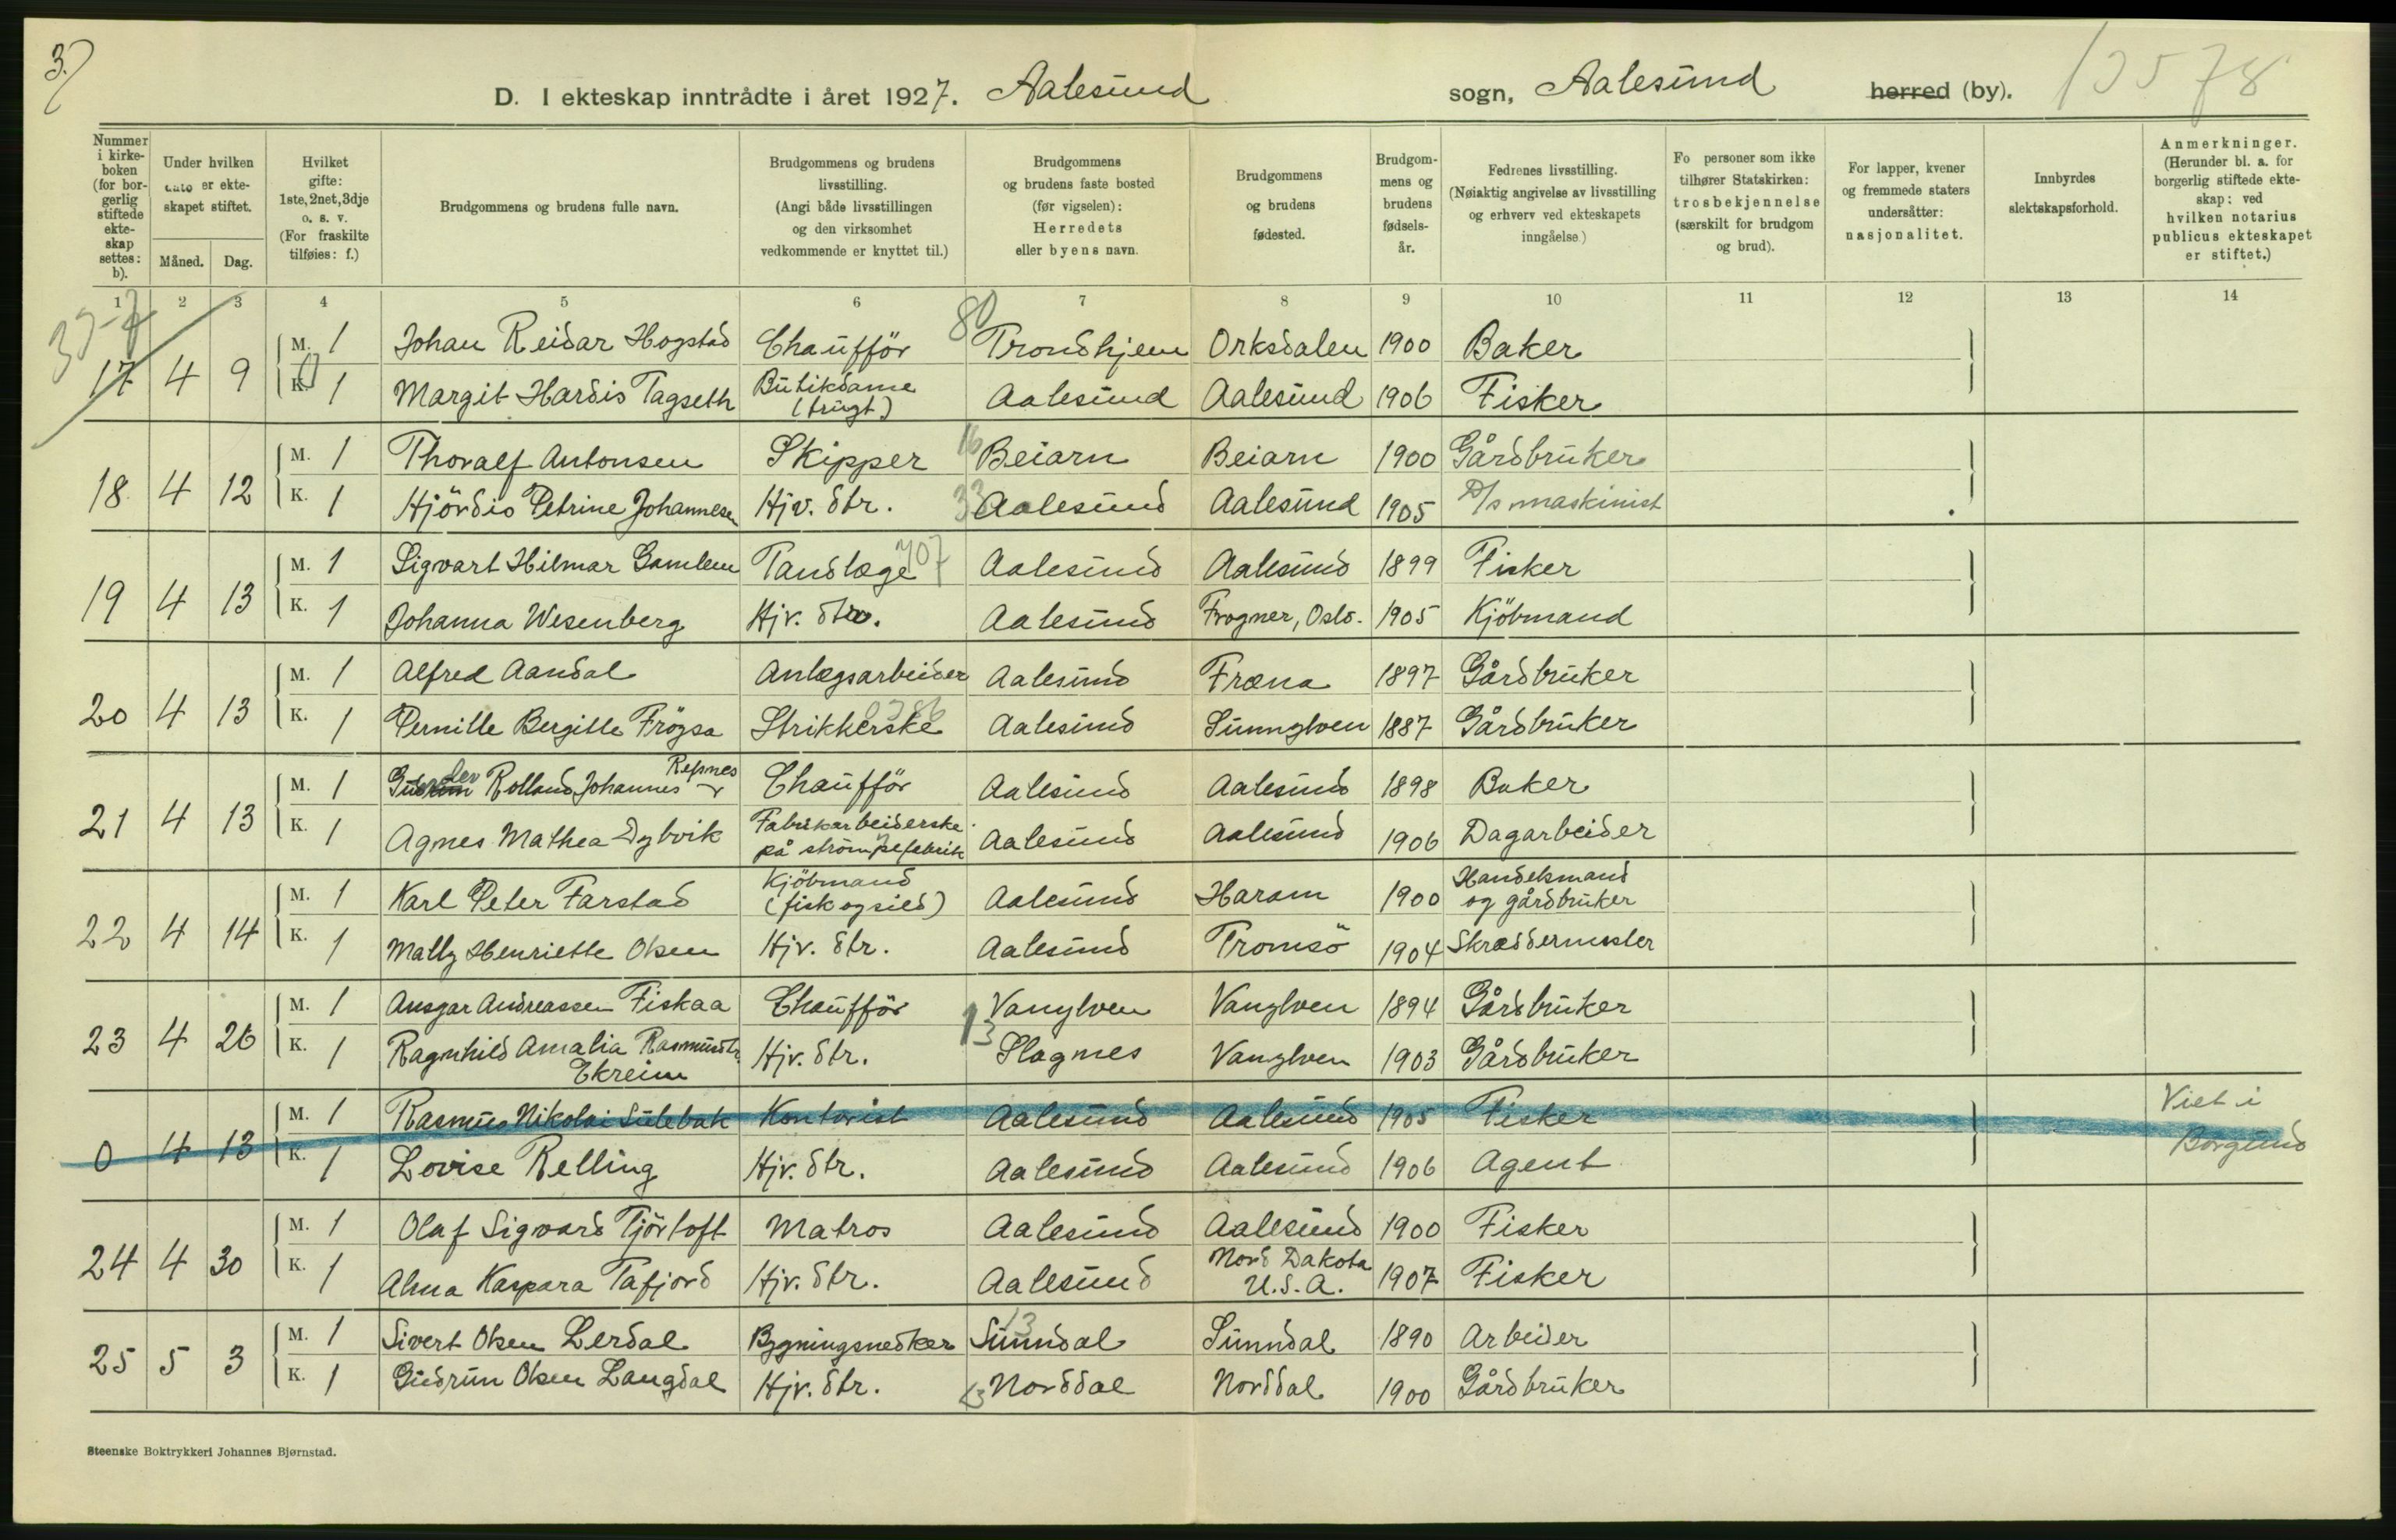 3.)
D. I ekteskap inntrådte i året 1927. Aalesund sogn, Aalesund herred (by). 13578
Nummer i kirkeboken (for borgerlig stiftede ekteskap settes: b).
Under hvilken dato er ekteskapet stiftet.
Måned. Dag.
Hvilket gifte: 1ste, 2net, 3dje o. s. v. (For fraskilte tilføies: f.)
Brudgommens og brudens fulle navn.
Brudgommens og brudens livsstilling. (Angi både livsstillingen og den virksomhet vedkommende er knyttet til.)
Brudgommens og brudens faste bosted (før vigselen): Herredets eller byens navn.
Brudgommens og brudens fødested.
Brudgommens og brudens fødselsår.
Fedrenes livsstilling. (Nøiaktig angivelse av livsstilling og erhverv ved ekteskapets inngåelse)
Fo personer som ikke tilhører Statskirken: trosbekjennelse (særskilt for brudgom og brud).
For lapper, kvener og fremmede staters undersåtter: nasjonalitet.
Innbyrdes slektskapsforhold.
Anmerkninger. (Herunder bl. a. for borgerlig stiftede ekteskap: ved hvilken notarius publicus ekteskapet er stiftet.)
1 2 3 4 5 6 7 8 9 10 11 12 13 14
17 4 9 M. 1 Johan Reidar Hogstad Chaufför 80 Trondhjem Orksdalen 1900 Baker
K. 1 Margit Hardis Tagseth Butikdame (frugt) Aalesund Aalesund 1906 Fisker
18 4 12 M. 1 Thoralf Antonsen Skipper 16 Beiarn Beiarn 1900 Gårdbruker
K. 1 Hjördis Petrine Johannesen Hjv. dtr. 33 Aalesund Aalesund 1905 D/s maskinist
19 4 13 M. 1 Sigvart Hilmar Gamlem Tandlæge 707 Aalesund Aalesund 1899 Fisker
K. 1 Johanna Wesenberg Hjv. dtr. Aalesund Frogner, Oslo. 1905 Kjöbmand
20 4 13 M. 1 Alfred Aandal Anlægsarbeider Aalesund Fræna 1897 Gårdbruker
K. 1 Pernille Bergitte Frögsa Strikkerske Aalesund Sunnylven 1887 Gårdbruker
21 4 13 M. 1 Rolland Johannes Refsnes Chaufför Aalesund Aalesund 1898 Baker
K. 1 Agnes Mathea Dybvik Fabrikarbeiderske på strømpefabrik Aalesund Aalesund 1906 Dagarbeider
22 4 14 M. 1 Karl Peter Farstad Kjöbmand (fisk og sild) Aalesund Haram 1900 Handelsmand og gårdbruker
K. 1 Mally Henriette Olsen Hjv. dtr. Aalesund Tromsö 1904 Skræddermester
23 4 26 M. 1 Ansgar Andreassen Fiskaa Chaufför Vanylven Vanylven 1894 Gårdbruker
K. 1 Ragnhild Amalia Rasmusdtr. Ekreim Hjv. dtr. 13 Slagnes Vanylven 1903 Gårdbruker
0 4 13 M. 1 Rasmus Nikolai Sulebak Kontorist Aalesund Aalesund 1905 Fisker Viet i
K. 1 Lovise Relling Hjv. dtr. Aalesund Aalesund 1906 Agent Borgund
24 4 30 M. 1 Olaf Sigvard Tjörtoft Matros Aalesund Aalesund 1900 Fisker
K. 1 Alma Kaspara Tafjord Hjv. dtr. Aalesund Nord Dakota U.S.A. 1907 Fisker
25 5 3 M. 1 Sivert Olsen Lerdal Bygningsnedker 13 Sunndal Sunndal 1890 Arbeider
K. 1 Gudrun Olsen Langdal Hjv. dtr. Norddal Norddal 1900 Gårdbruker
Steenske Boktrykkeri Johannes Bjørnstad.